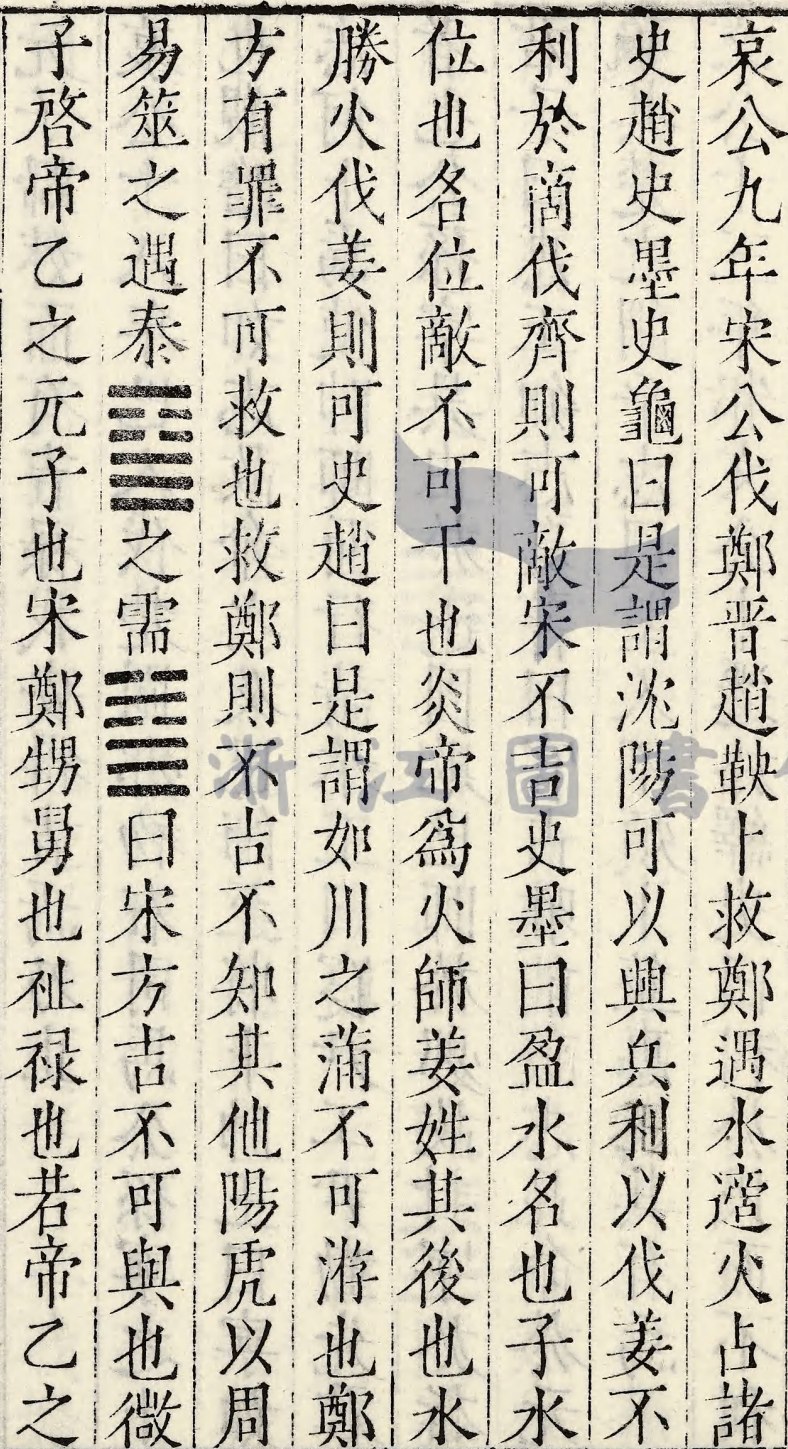 哀公九年宋公伐鄭晋趙鞅卜救鄭遇水適火占諸
史趙史墨史龜曰是謂沈陽可以興兵利以伐姜不
利於商伐齊則可敵宋不吉史墨曰盈水名也子水
位也名位敵不可干也炎帝爲火師姜姓其後也水
勝火伐姜則可史趙曰是謂如川之滿不可游也鄭
方有罪不可救也救鄭則不吉不知其他陽虎以周
易筮之遇泰䷊之需䷄曰宋方吉不可與也微
子啓帝乙之元子也宋鄭甥舅也祉禄也若帝乙之
浙江圖書